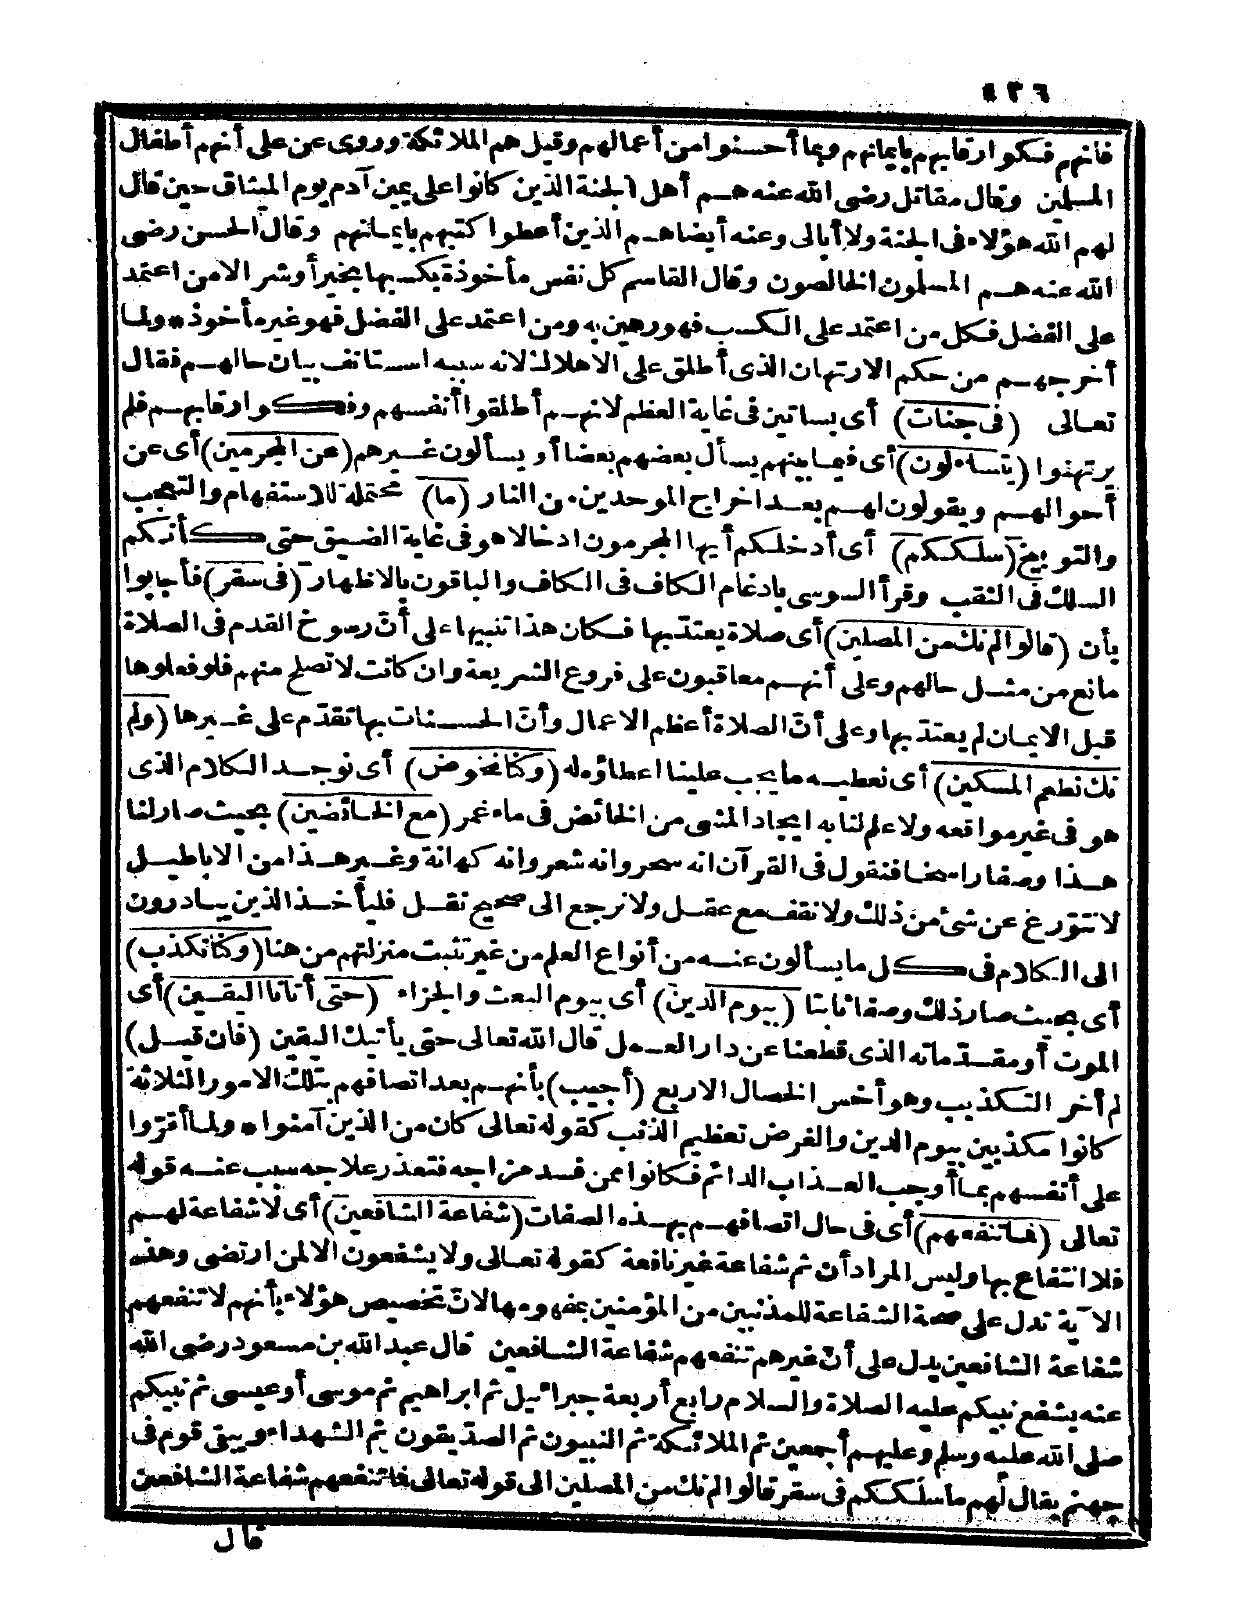 ٤٣٦
فانهم فكوا رقابهم بايمانهم وبما أحسنوا من أعمالهم وقيل هم الملائكة وروى عن على أنهم أطفال
المسلمين وقال مقاتل رضى الله عنه هـم أهل الجنة الذين كانوا على يمين آدم يوم الميثاق حين قال
لهم الله هؤلاء فى الجنة ولا أبالى وعنه أيضا هـم الذين أعطوا كتبهم بايمـانهم وقال الحسن رضى
الله عنه هـم المسلمون الخالصون وقال القاسم كل نفس مأخوذة بكسبها بخير أو شر الا من اعتمد
على الفضل فـكل من اعتمد على الـكسب فهو رهين به ومن اعتمد على الفضل فهو غير مأخوذ * ولما
أخرجهـم من حكم الارتهان الذى أطلق على الاهلاك لانه سببه اسـتأنف بيان حالهـم فقال
تعـالى (فى جنات) أى بساتين فى غاية العظم لانهـم أطلقوا أنفسهم وفـكوا رقابهـم فلم
يرتهنوا (يتساءلون) أى فيمـا بينهم يسأل بعضهم بعضا أو يسألون غـيرهم (عن المجرمين) أى عن
أحوالهـم ويقولون لهـم بعـد اخراج الموحدين من النار (ما) محتملة للاستفهام والتعجب
والتوبيخ (سلـككم) أى أدخلـكم أيها المجرمون ادخالا هو فى غاية الضـيق حتى كأنـكم
السلك فى الثقب وقرأ السوسى بادغام الـكاف فى الـكاف والباقون بالاظهار (فى سقر) فأجابوا
بأن (قالوا لم نك من المصلين) أى صلاة يعتدّ بها فـكان هذا تنبيها على أنّ رسوخ القدم فى الصلاة
مانع من مثـل حالهم وعلى أنهـم معاقبون على فروع الشريعة وان كانت لا تصلح منهم فلو فعلوها
قبل الايمـان لم يعتدّ بها وعلى أنّ الصلاة أعظم الاعمال وأنّ الحسـنات بها تقدّم على غـيرها (ولم
نك نطعم المسكين) أى نعطيـه ما يجب علينا اعطاؤه له (وكنا نخوض) أى نوجـد الـكلام الذى
هو فى غير مواقعه ولا علم لنا به ايجاد المشى من الخائض فى ماء غمر (مع الخائضين) بحيث صار لنا
هـذا وصفا راسخا فنقول فى القرآن انه سحر وانه شعر وانه كهانة وغـير هـذا من الاباطيـل
لا نتورّع عن شئ من ذلك ولا نقف مع عقـل ولا نرجع الى صحيح نقـل فليأخـذ الذين يبـادرون
الى الـكلام فى كـل ما يسألون عنـه من أنواع العلم من غير تثبت منزلتهم من هنا (وكنا نكذب)
أى بحيث صار ذلك وصفا ثابتا (بيوم الدين) أى بيوم البعث والجزاء (حتى أتانا اليقـين) أى
الموت أو مقـدّماته الذى قطعنا عن دار العـمل قال الله تعالى حتى يأتيك اليقين (فان قيـل)
لم أخر التـكذيب وهو أخس الخصال الاربع (أجيب) بأنهـم بعد اتصافهم بتلك الامور الثلاثة
كانوا مكذبين بيوم الدين والغرض تعظيم الذنب كقوله تعالى كان من الذين آمنوا * ولما أقرّوا
على أنفسهم بمـا أوجب العـذاب الدائم فـكانوا ممن فسد مزاجه فتعذر علاجه سبب عنـه قوله
تعالى (فـاتنفعهم) أى فى حال اتصافهـم بهـذه الصفات (شفاعة الشافعين) أى لا شفاعة لهـم
فلا انتفاع بها وليس المراد أن ثم شفاعة غير نافعة كقوله تعـالى ولا يشفعون الا لمن ارتضى وهذه
الآية تدل على صحة الشفاعة للمذنبين من المؤمنين بمفهومها لانّ تخصيص هؤلاء بأنهم لا تنفعهم
شفاعة الشافعين يدل على أنّ غيرهم تنفعهم شفاعة الشـافعين قال عبد الله بن مسعود رضى الله
عنه يشفع نبيكم عليه الصلاة والسلام رابع أربعة جبرائيل ثم ابراهيم ثم موسى أو عيسى ثم نبيكم
صلى الله عليه وسلم وعليهـم أجمعين ثم الملائـكة ثم النبيون ثم الصدّيقون ثم الشهداء ويبقى قوم فى
جهنم يقال لهم ما سلـككم فى سقر قالوا لم نك من المصلين الى قوله تعالى فاتنفعهم شفاعة الشافعين
قال